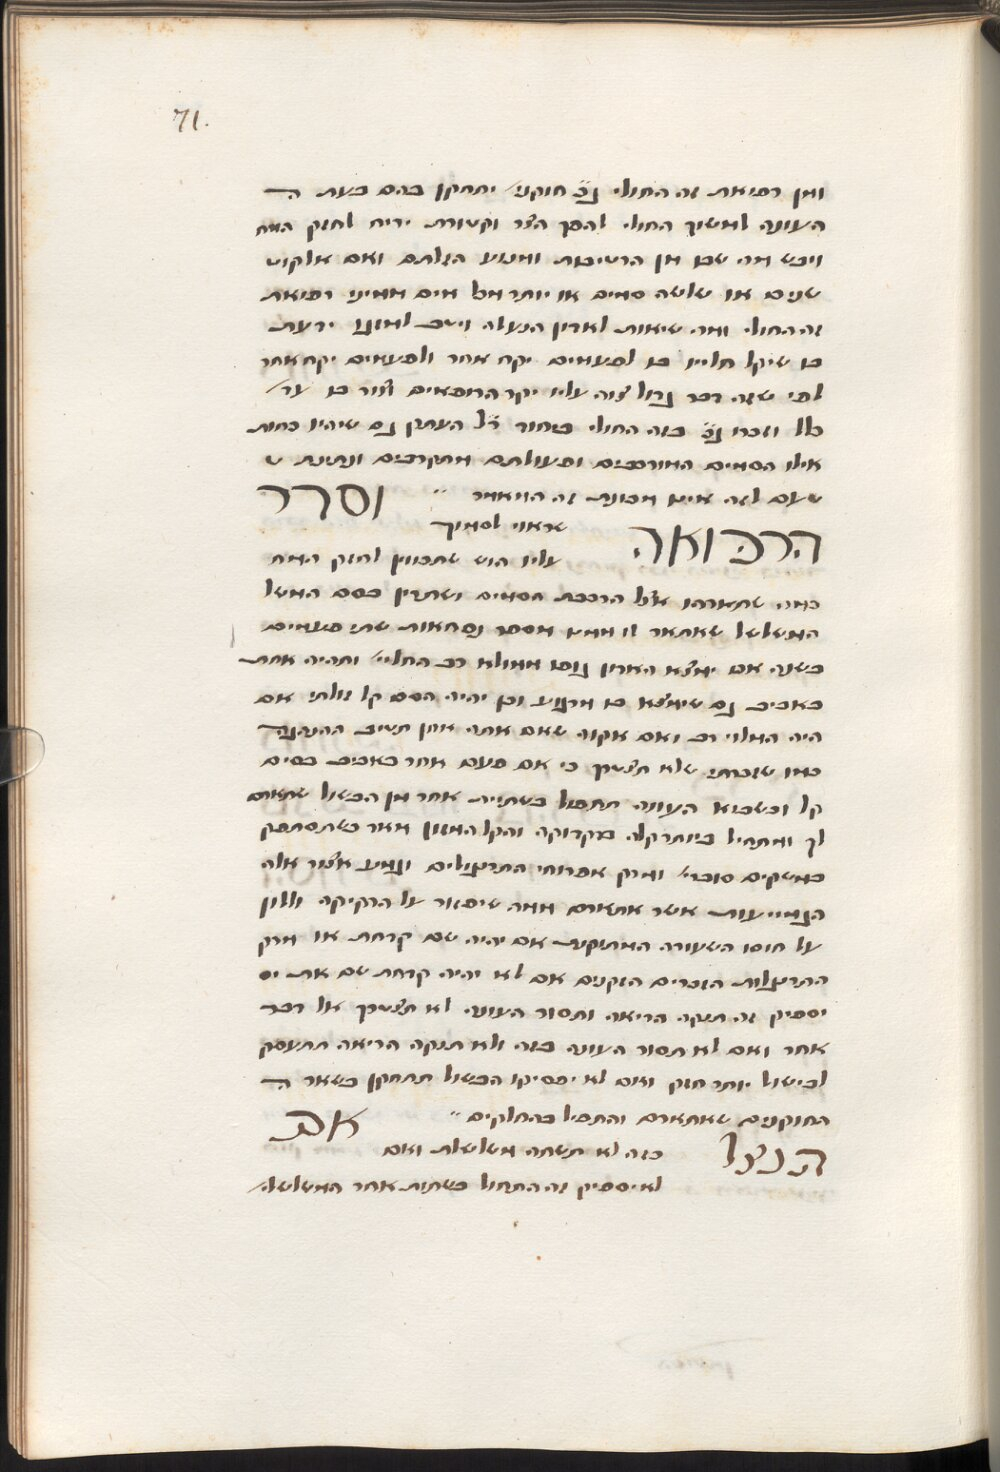 71.
ומן רפואת זה החולי גם חוקני יתחקן בהם בעת ה
העונה למשוך החולי להפך הצד וקשורת ידיו לחזק המח
ויבש מה שבו מן הרטיבות ומנוע הזלתם ואם אלקוש
שנים או שלשה סמים או יותר מים ממיני רפואת
זה החולי ומה שיאות לארון הנעלה וישב למזגו ידעת
בו שיקל חליו בו לפעמים יקח אחד ולפעמים יקח אחר
לפי שזה דבר גדול צוה עליו יקר הרופאים עד
כלל וזכרו גם בזה החולי ביחוד העתק גם שיהיו כחות
אילו הסמים המורכבים ופעולתם מתקרבים ונתינת ש
טעם לזה אינו מכוונת זה המאמר וסדר
הרפואה שראוי לסמוך
עליו הוא שתכוין לחזק המח
במה שתארתו אצל הרכבת הסמים ושתדין בסם המשל
המשלשל שאתאר לו ממנו מספר נסחאות שתי פעמים
בשנה אם ימצא הארון גופו ממולא רב החליי ותהיה אחת
באביב גם שימצא בו מרגוע וכן יהיה הסם קל זולתי אם
היה המלוי רב ואם אקוה שאם אתה אתן תטיב ההנהגה
כמו שזכרתי שלא תצטרך כי אם פעם אחד באביב בסים
קל וכשבוא העונה תתחיל בשתיית אחד מן הבשול שתארתי
לך ותתחיל ביותר קלה בקדוקה והקל המזון מאד כשתסתפק
במשקים סוכרי ומרק אפרוחי התרנגולים ונמנע אצור אלה
הנמייעות אשר אתארם ממה שיסור על הרקיקה וללון
על חוסו השעורה המתוקנת אם יהיה שם קדחת או מרק
התרנגולות הזכרים הזקנים אם לא יהיה קדחת שם את יס
יספיק זה תנקה הריאה ותסור העונה לא תצטרך אל דבר
אחר ואם לא תסור העונה בזה ולא תנקה הריאה תתעסק
לבישול יותר חזק ואם לא יספיקו הבשול תתחקן בשאר ה
החוקנים שאתארם והתחיל בהחלקים אם
הנצל בזה לא תשתה משלשלת ואם
לא יספיק זה התחול בשתות אחד המשלשלי